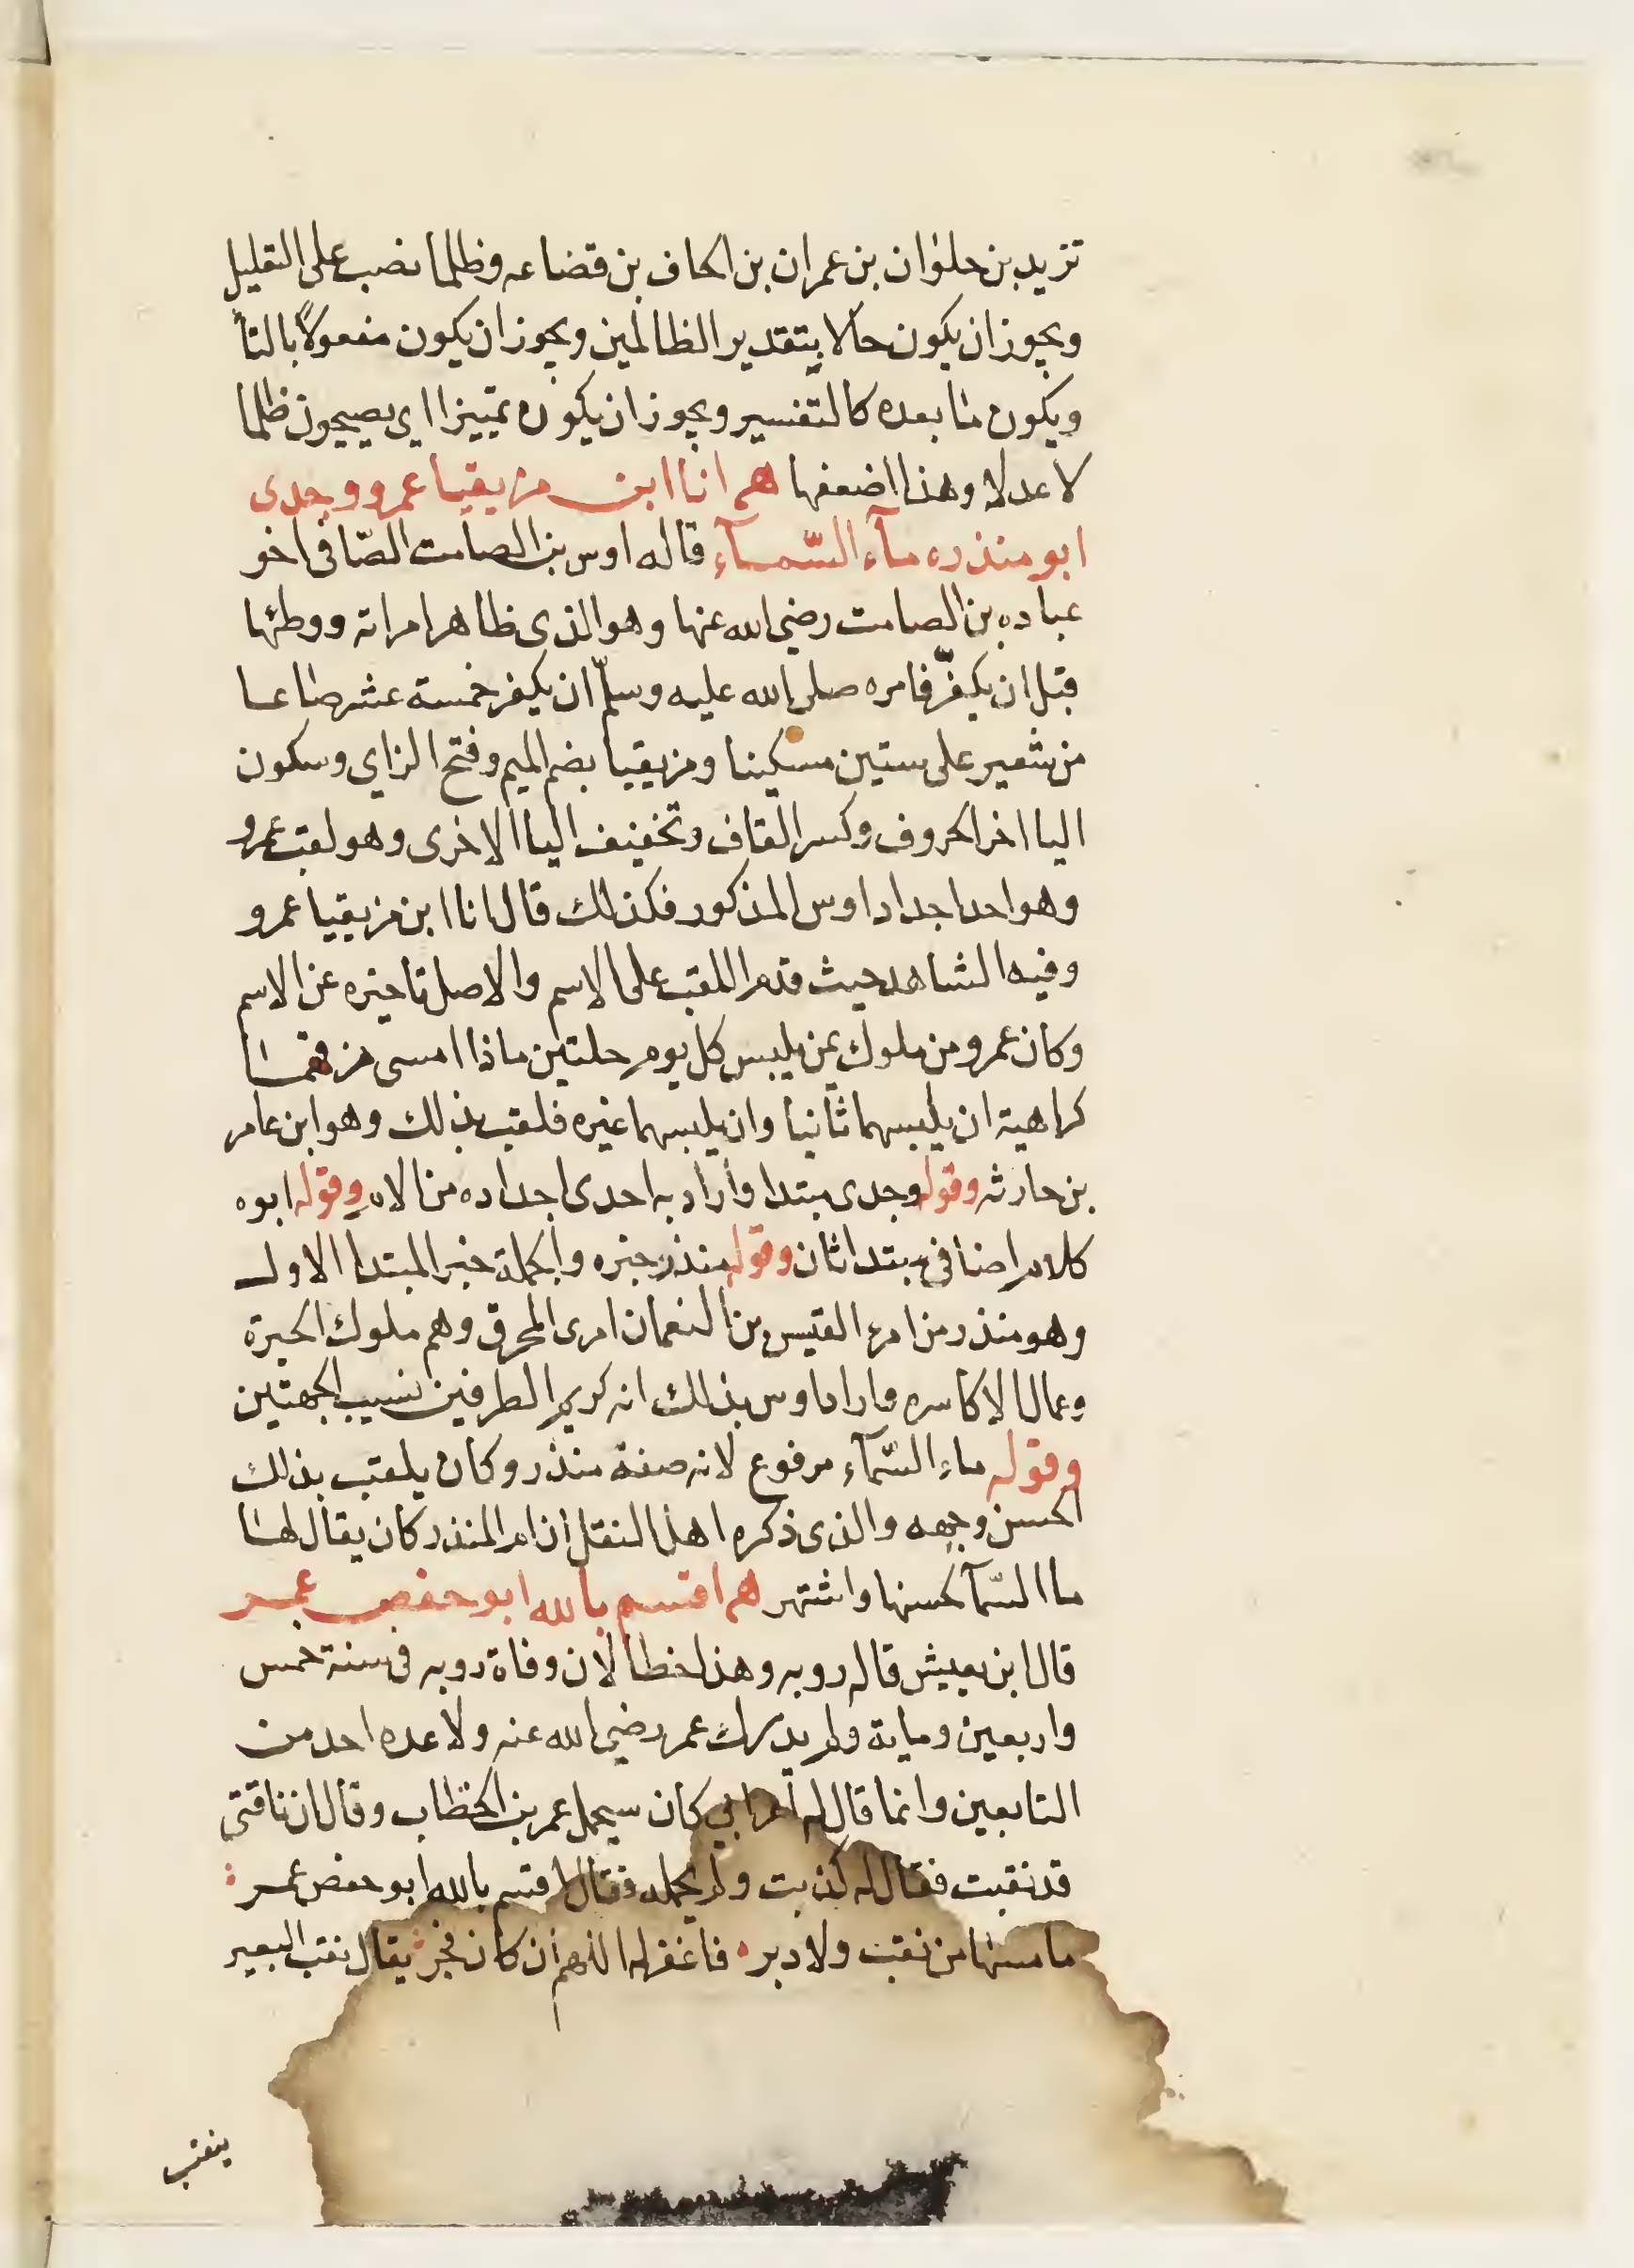 تزيد بن حلوان بن عمران بن الحاف بن قضاعه وظلما نصب على التعليل
ويجوز ان يكون حالا بتقدير الظالمين ويجوز ان يكون مفعولاً بالتا
ويكون ما بعده كالتفسير ويجوز ان يكون تمييزا اى يصيحون ظلما
لا عدلا وهذا اضعفها هم انا ابن مزيقيا عمرو وجدى
ابو منذره مآء السّمآء قاله اوس بن الصامت الصّافى اخو
عباده بن الصامت رضي الله عنها وهو الذى ظاهر امراته ووطئها
قبل ان يكفّر فامره صلى الله عليه وسلّم ان يكفر خمسة عشر صاعا
من شعير على ستين مسكينا ومزيقيا بضم الميم وفتح الزاي وسكون
اليا اخر الحروف وكسر القاف وتخفيف اليا الاخرى وهو لقب عمرو
وهو احد اجداد اوس المذكور فكذلك قال انا ابن مزيقيا عمرو
وفيه الشاهد حيث قدم اللقب على الاسم والاصل تاخيره عن الاسم
وكان عمرو من ملوك يمن يلبس كل يوم حلتين ماذا امسى مزقهما
كراهية ان يلبسهما ثانيا وان يلبسهما غيره فلقب بذلك وهو ابن عامر
بن حارثه وقوله وجدى مبتدا واراد به احدى اجداده من الام وقوله ابوه
كلام اضافى مبتدا ثان وقوله منذر خبره والجملة خبر المبتدا الاول
وهو منذر من امرء القيس بن النعمان امرى المحرق وهم ملوك الحيرة
وعمال الاكاسره واراد اوس بذلك انه كريم الطرفين نسيب الجهتين
وقوله ماء السّمآء مرفوع لانه صفة منذر وكان يلقب بذلك
الحسن وجهه والذى ذكره اهل النقل ان ام المنذر كان يقال لها
ما السّمآ لحسنها واشتهر هم اقسم بالله ابو حفص عمر
قال ابن يعيش قاله روبه وهذا خطا لان وفاة روبه فى سنة خمس
واربعين وماية ولم يدرك عمر رضي الله عنه ولا عده احد من
التابعين وانما قال له اعرابي كان سيحمل عمر بن الخطاب وقال ان ناقتى
قد نقبت فقال له كذبت ولم يحمله فقال اقسم بالله ابو حفص عمر
ما مسها من نقب ولا دبر فاغفر له اللهم ان كان فجر يقال نقب البعير
ينقب